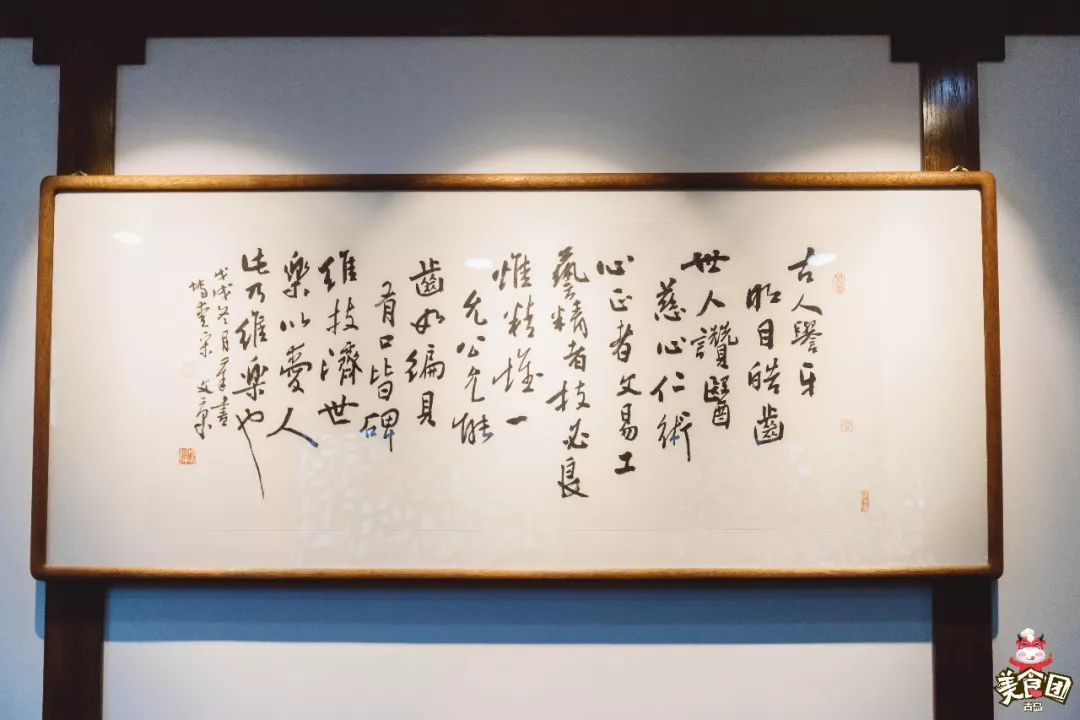 古人譽牙
明目皓齒
世人讚醫
慈心仁術
心正者文易工
藝精者技必良
惟精惟一
允公允能
齒如編貝
有口皆碑
維技濟世
樂以愛人
此乃維樂也
戊戌冬月 書
文
美食团